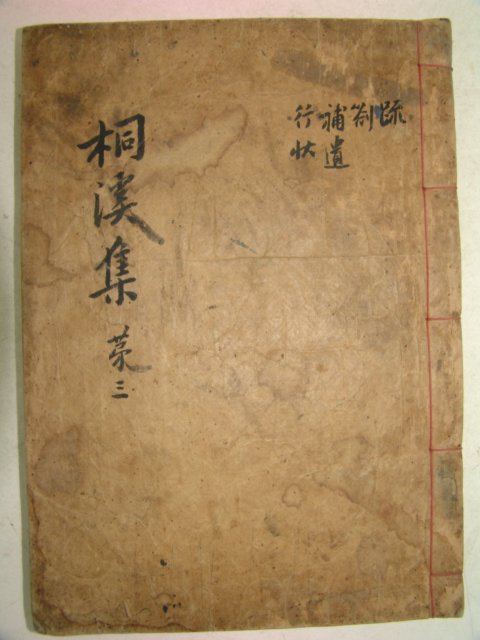 疏
箚
補遺
行狀
桐溪集 第三